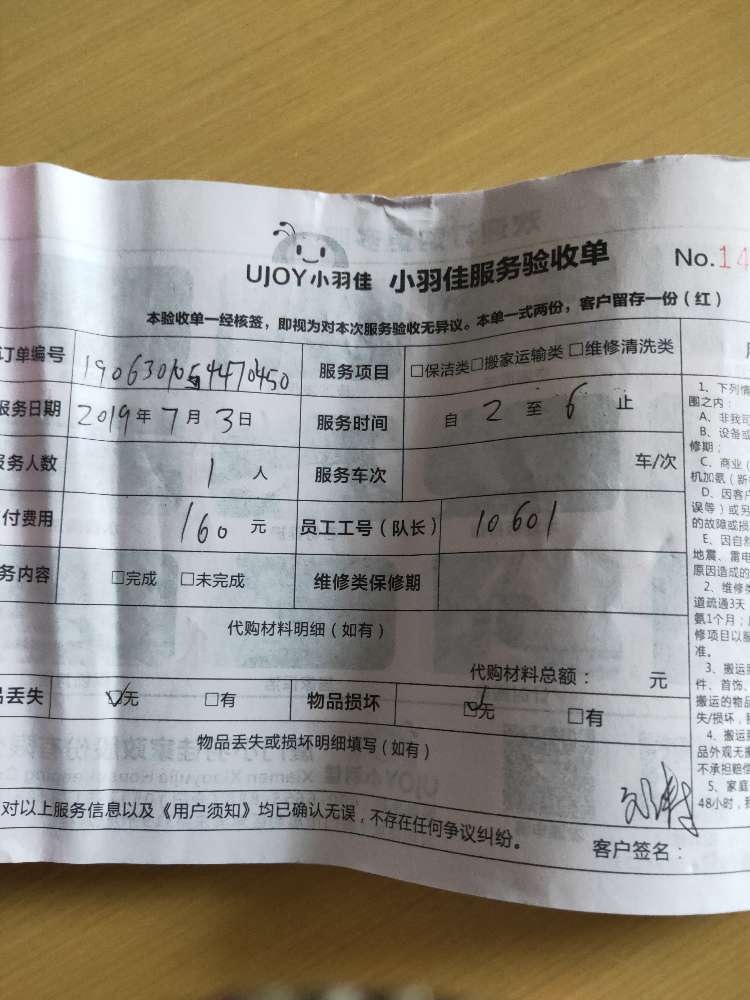 UJOY小羽佳 小羽佳服务验收单 No.14
本验收单一经核签，即视为对本次服务验收无异议。本单一式两份，客户留存一份（红）
订单编号 1906301054470450 服务项目 □保洁类□搬家运输类 □维修清洗类
服务日期 2019年7月3日 服务时间 自 2 至 6 止
务人数 1 人 服务车次 车/次
付费用 160 元 员工工号（队长） 10601
务内容 □完成 □未完成 维修类保修期
代购材料明细（如有）
代购材料总额： 元
品丢失 ☑无 □有 物品损坏 ☑无 □有
物品丢失或损坏明细填写（如有）
对以上服务信息以及《用户须知》均已确认无误，不存在任何争议纠纷。
客户签名：
1、下列情
围之内：
A、非我司
B、设备或
修期；
C、商业（
机加氨（新
D、因客户
误等）或另
的故障或损
E、因自然
地震、雷电
原因造成的
2、维修类
道疏通3天
氨1个月；
修项目以服
准。
3、搬运
件、首饰、
搬运的物品
失/损坏，
4、搬运
品外观无
不承担赔偿
5、家庭
48小时，